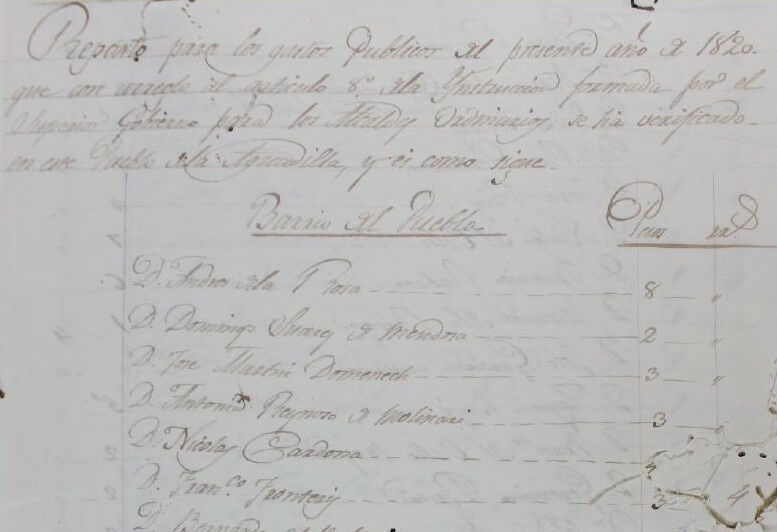 Reparto para los gastos Publicos del presente año de 1820.
que con arreglo al articulo 8.º de la Instruccion formada por el
Superior Gobierno para los Alcaldes Ordinarios, se ha verificado
en este Pueblo de la Aguadilla, y es como sigue
Barrio del Pueblo Pesos rr.s
D. Andres de la Rosa 8 „
D. Domingo Suarez de Mendoza 2 „
D. Jose Martin Domenech 3 „
D. Antonio Reynoso de Molinari 3 „
D. Nicolas Cardona
D. Fran.co 3 4
D. Bernardo